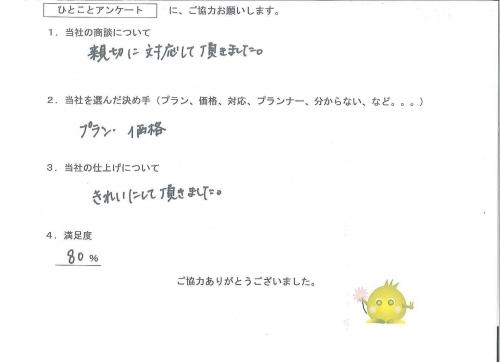 ひとことアンケート に、ご協力お願いします。
1．当社の商談について
親切に対応して頂きました。
2．当社を選んだ決め手（プラン、価格、対応、プランナー、分からない、など。。。）
プラン・価格
3．当社の仕上げについて
きれいにして頂きました。
4．満足度
80%
ご協力ありがとうございました。